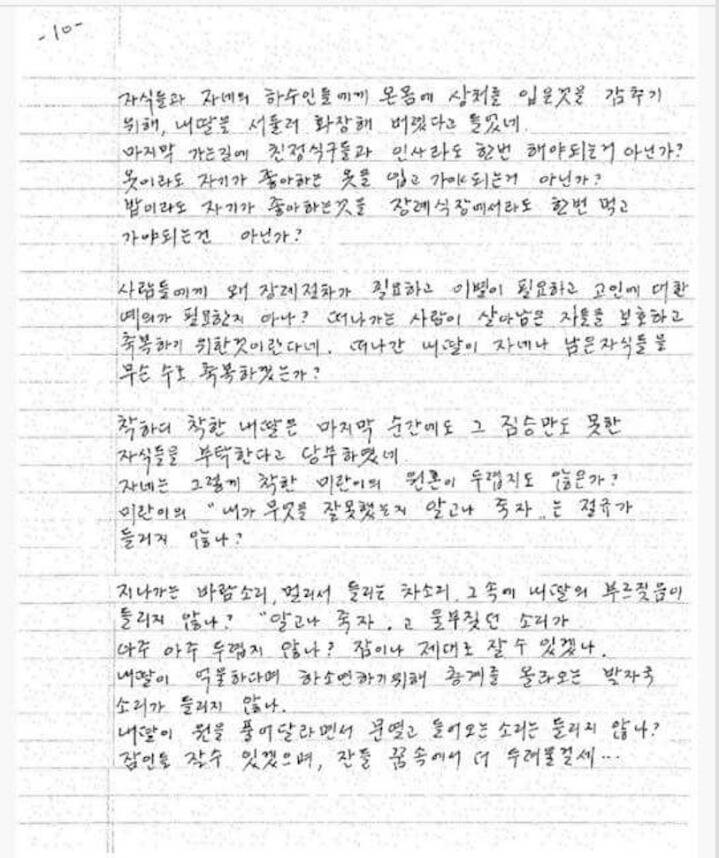 -10-
자식들과 자네의 하수인들에게 온몸에 상처를 입은것을 감추기
위해, 내딸을 서둘러 화장해 버렸다고 들었네.
마지막 가는길에 친정식구들과 인사라도 한번 해야되는거 아닌가?
옷이라도 자기가 좋아하는 옷을 입고 가야되는거 아닌가?
밥이라도 자기가 좋아하는것을 장례식장에서라도 한번 먹고
가야되는건 아닌가?
사람들에게 왜 장례절차가 필요하고 이별이 필요하고 고인에 대한
예의가 필요한지 아나? 떠나가는 사람이 살아남은 자들을 보호하고
축복하기 위한것이란다네. 떠나간 내딸이 자네나 남은자식들을
무슨 수로 축복하겠는가?
착하디 착한 내딸은 마지막 순간에도 그 짐승만도 못한
자식들을 부탁한다고 당부하였네.
자네는 그렇게 착한 미란이의 원혼이 두렵지도 않은가?
미란이의 "내가 무엇을 잘못했는지 알고나 죽자" 는 절규가
들리지 않나?
지나가는 바람소리, 멀리서 들리는 차소리, 그속에 내딸의 부르짖음이
들리지 않나? "알고나 죽자" 고 울부짖던 소리가
아주 아주 두렵지 않나? 잠이나 제대로 잘수 있겠나.
내딸이 억울하다며 하소연하기위해 층계를 올라오는 발자국
소리가 들리지 않나.
내딸이 원을 풀어달라면서 문열고 들어오는 소리는 들리지 않나?
잠인들 잘수 있겠으며, 잔들 꿈속에서 더 두려울걸세...